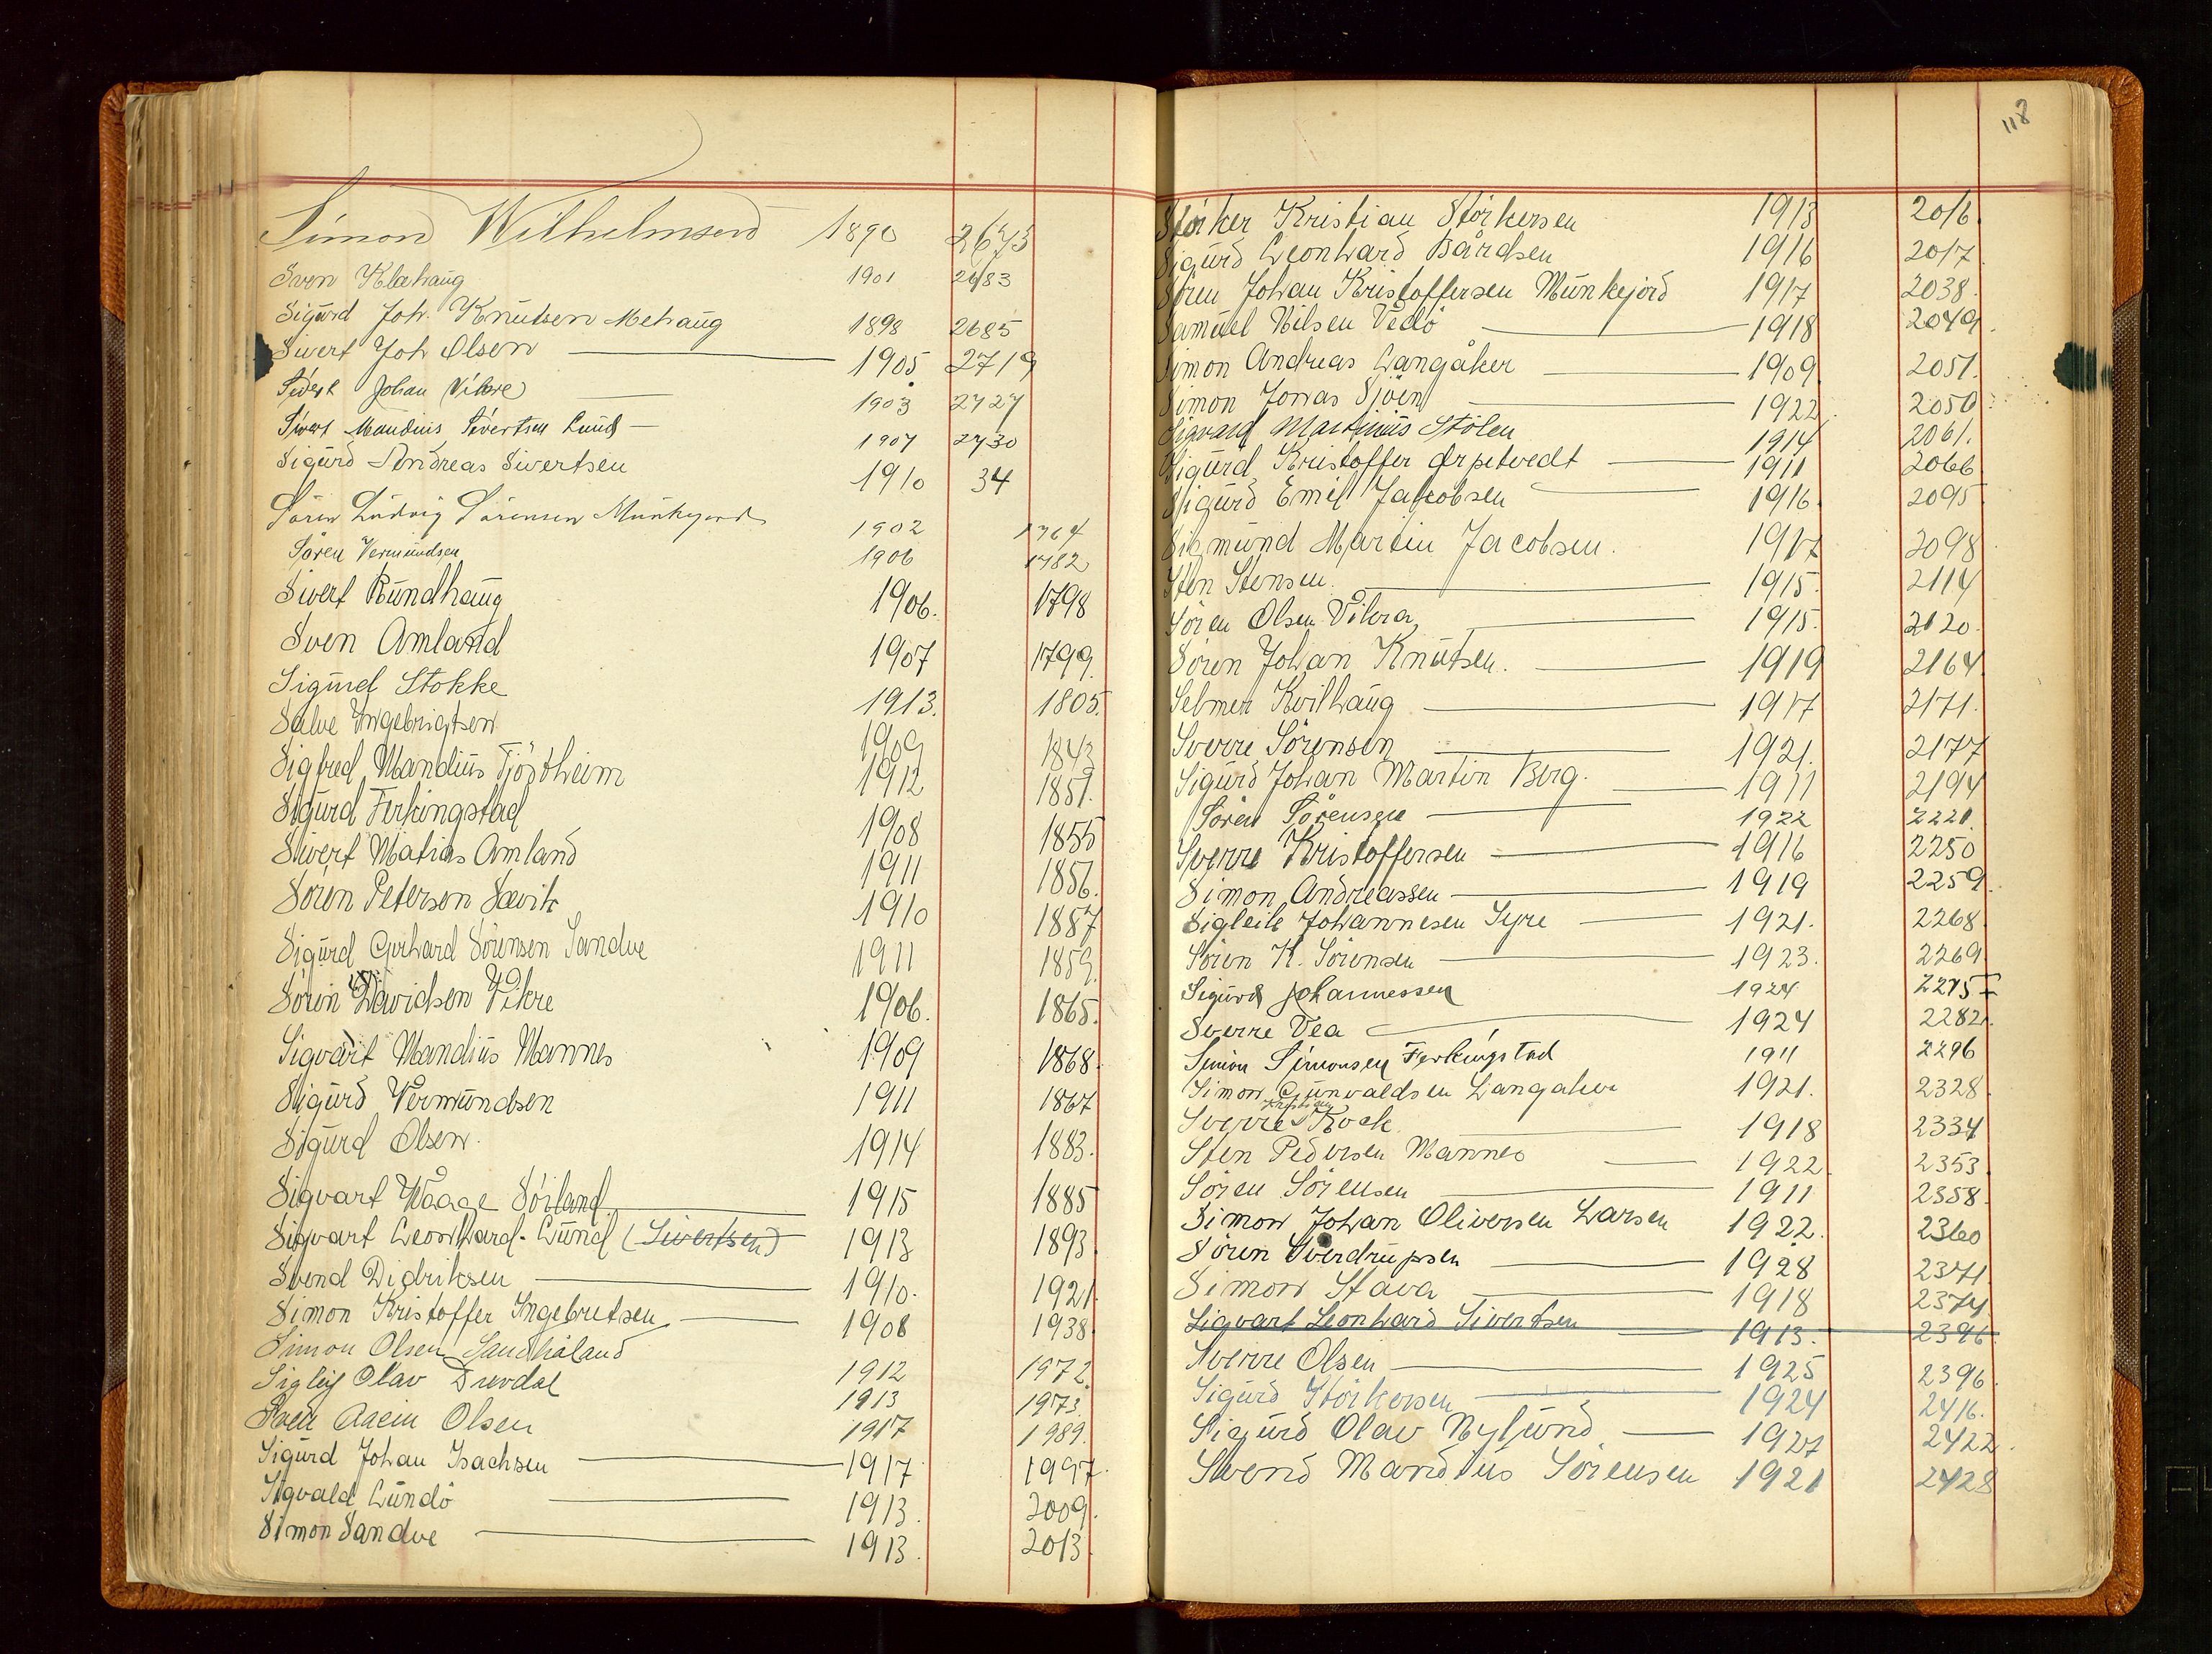 Simon Wilhelmsen 1890 2673
Sven Klæhaug 1901 2683
Sigurd Joh. Knutsen Mehaug 1898 2685
Sivert Joh Olsen 1905 2719
Sivert Johan Vikre 1903 2727
Sivert Mandius Sivertsen Lund 1907 2730
Sigurd Andreas Sivertsen 1910 34
Sören Ludvig Sörensen Munkejord 1902 1764
Sören Vermundsen 1906 1782
Sivert Rundhaug 1906. 1798
Sven Amland 1907 1799.
Sigurd Stokke 1913. 1805.
Salve Ingebrigtsen 1909 1843
Sigfred Mandius Tjöstheim 1912 1851.
Sigurd Ferkingstad 1908 1855
Sivert Matias Amland 1911 1856.
Sören Peterson Sævik 1910 1887
Sigurd Gerhard Sörensen Sandve 1911 1859.
Sören Davidsen Vikre 1906. 1865.
Sigvart Mandius Mannes 1909 1868.
Sigurd Vermundsen 1911 1867
Sigurd Olsen. 1914 1883.
Sigvart Waage Sörland 1915 1885
Sigvart Leonhard Lund (Sivertsen) 1913 1893.
Svend Didriksen 1910. 1921
Simon Kristoffer Ingebretsen 1908 1938.
Simon Olsen Sandhåland 1912 1972.
Sigleif Olav Drevdal 1913 1973.
Svein Olsen 1917 1989.
Sigurd Johan Isachsen 1917 1997.
Sigvald Lundö 1913. 2009.
Simon Sandve 1913. 2013.
118
Störker Kristian Störkersen 1913 2016.
Sigurd Leonhard Bårdsen 1916 2017.
Sören Johan Kristoffersen Munkejord 1917 2038.
Samuel Nilsen Vedö 1918 2049.
Simon Andreas Langåker 1909. 2051.
Simon Jonas Sjöen 1922. 2050.
Sigvard Martinius Stölen 1914 2061.
Sigurd Kristoffer 1911 2066
Sigurd Emil Jakobsen 1916. 2095
Sigmund Martin Jacobsen. 1917 2098
Sten Stensen. 1915. 2114
Sören Olsen Vikra 1915. 2120.
Sören Johan Knutsen. 1919 2164
Selmer Kvilhaug 1917 2171.
Sverre Sörensen 1921. 2177
Sigurd Johan Martin Berg. 1911 2194
Sören Sörensen 1922 2221.
Sverre Kristoffersen 1916 2250
Simon Andreassen 1919 2259.
Sigleik Johannesen Syre 1921. 2268.
Sören K. Sörensen 1923. 2269.
Sigurd Johannessen 1924 2275
Sverre Vea 1924 2282.
Simon Simonsen Ferkingstad 1911 2296
Simon Gunvaldsen Langaker 1921. 2328.
Kristian
Sverre Kock 1918 2334
Sten Pedersen Mannes 1922. 2353.
Sören Sörensen 1911 2358.
Simon Johan Oliversen Larsen 1922. 2360
Sören Sverdrupsen 1928 2371.
Simon Stava 1918 2374.
Sigvart Leonhard Sivertsen 1913. 2396
Sverre Olsen 1925 2396.
Sigurd Störkersen 1924 2416.
Sigurd Olav Nylund 1927 2422.
Svend Mandius Sörensen 1921 2428